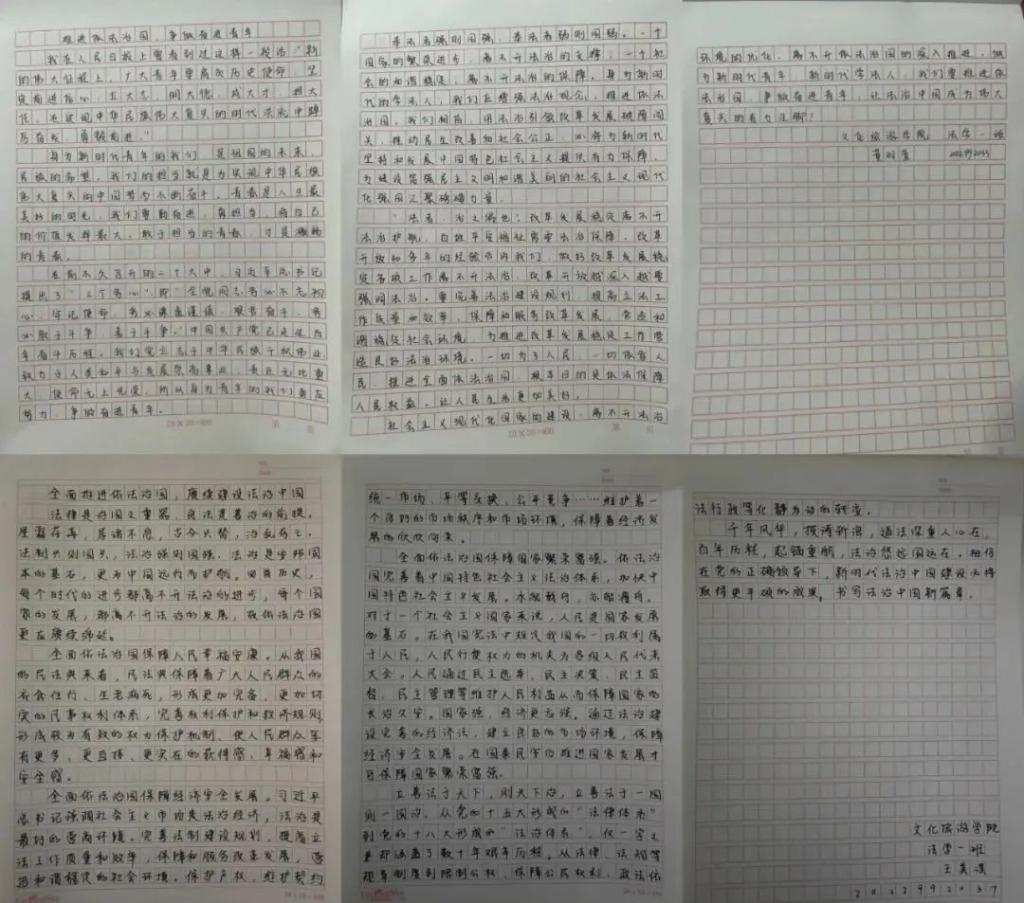 推进依法治国，争做奋进青年
我在人民日报上曾看到过这样一段话："新
的伟大征程上，广大青年要肩负历史使命，坚
定前进信心，立大志、明大德、成大才、担大
任，在实现中华民族伟大复兴的时代洪流中踔
厉奋发，勇毅前进。"
身为新时代青年的我们，是祖国的未来，
民族的希望，我们的担当就是为实现中华民族
伟大复兴的中国梦而不断奋斗。青春是人生最
美好的时光，我们要勤奋进，有担当，将自己
的价值发挥最大，敢于担当的青春，才是激扬
的青春。
在前不久召开的二十大中，习近平总书记
提出了"三个务必"，即"全党同志务必不忘初
心、牢记使命，务必谦虚谨慎、艰苦奋斗，务
必敢于斗争、善于斗争。"中国共产党已走过百
年奋斗历程。我们党立志于中华民族千秋伟业，
致力于人类和平与发展崇高事业，责任无比重
大，使命无上光荣，所以身为青年的我们要在
努力，争做奋进青年。
奉法者强则国强，奉法者弱则国弱。一个
国家的繁荣进步，离不开法治的支撑；一个社
会的和谐稳定，离不开法治的保障。身为新时
代的学法人，我们应增强法治观念，推进依法
治国。我们相信，用法治引领改革发展破障闯
关、推动民生改善和社会公正，必将为新时代
坚持和发展中国特色社会主义提供有力保障，
为建设富强民主文明和谐美丽的社会主义现代
化强国汇聚磅礴力量。
"法者，治之端也"，改革发展稳定离不开
法治护航，百姓平安福祉需要法治保障。改革
开放和多年的经验告诉我们，做好改革发展稳
定各项工作离不开法治，改革开放越深入越要
强调法治。要完善法治建设规划，提高立法工
作质量和效率，保障和服务改革发展，营造和
谐稳定社会环境，为推进改革发展稳定工作营
造良好法治环境。一切为了人民，一切依靠人
民，推进全面依法治国，根本目的是依法保障
人民权益，让人民生活更加美好。
社会主义现代化国家的建设，离不开法治
20×20=400
环境的优化，离不开依法治国的深入推进。做
为新时代青年，新时代学法人，我们要推进依
法治国，争做奋进青年，让法治中国成为伟大
复兴的有力注脚！
文化旅游学院 法学一班
全面推进依法治国，赓续建设法治中国
法律是治国之重器，良法是善治的前提。
星霜荏苒，居诸不息，古今兴替，治乱存亡。
法制兴则国兴，法治强则国强。法治是安邦固
本的基石，更为中国远行而护航。回首历史，
每个时代的进步都离不开法治的进步，每个国
家的发展，都离不开法治的发展，故依法治国
更应赓续绵延。
全面依法治国保障人民幸福安康。从我国
的民法典来看，民法典保障着广大人民群众的
衣食住行、生老病死，形成更加完备、更加切
实的民事权利体系，完善权利保护和救济规则，
形成较为有效的权力保护机制，使人民群众享
有更多、更直接、更实在的获得感、幸福感和
安全感。
全面依法治国保障经济安全发展。习近平
总书记强调社会主义市场是法治经济，法治是
最好的营商环境。完善法制建设规划，提高立
法工作质量和效率，保障和服务改革发展，营
造和谐稳定的社会环境。保护产权、维护契约
统一市场、平等交换、公平竞争……维护着一
个良好的市场秩序和市场环境，保障着经济发
展的欣欣向荣。
全面依法治国保障国家繁荣富强。依法治
国完善着中国特色社会主义法治体系，加快中
国特色社会主义发展。水能载舟，亦能覆舟。
对于一个社会主义国家来说，人民是国家发展
的基石。在我国宪法中规定我国的一切权利属
于人民，人民行使权力的机关为各级人民代表
大会。人民通过民主选举、民主决策、民主监
督、民主管理等维护人民利益从而保障国家的
长治久安。国家强，经济更应强。通过法治建
设完善的经济法，建立良好的市场环境，保障
经济安全发展。在国泰民安仍推进国家发展才
可保障国家繁荣富强。
立善法于天下，则天下治，立善法于一国
则一国治。从党的十五大形成的"法律体系"
到党的十八大形成的"法治体系"，仅一字之
差却涵盖了数十年艰辛历程。从法律、法规等
规章制度到限制公权，保障公民权利，政法依
法行政等化静为动的转变。
千年风华，拨清新浪，遵法深重人心在，
百年历程，起锚重航，法治悠远国运在。相信
在党的正确领导下，新时代法治中国建设必将
取得更丰硕的成果，书写法治中国新篇章。
文化旅游学院
法学一班